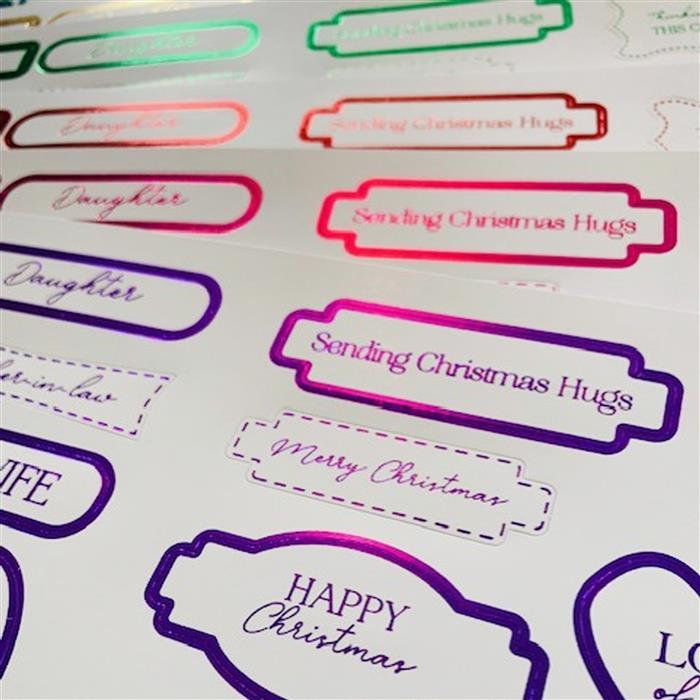 Daughter
Sending Christmas Hugs
THIS
Daughter
Sending Christmas Hugs
Daughter
Sending Christmas Hugs
Daughter
Sending Christmas Hugs
er-in-law
Merry Christmas
IFE
HAPPY
Christmas
LO